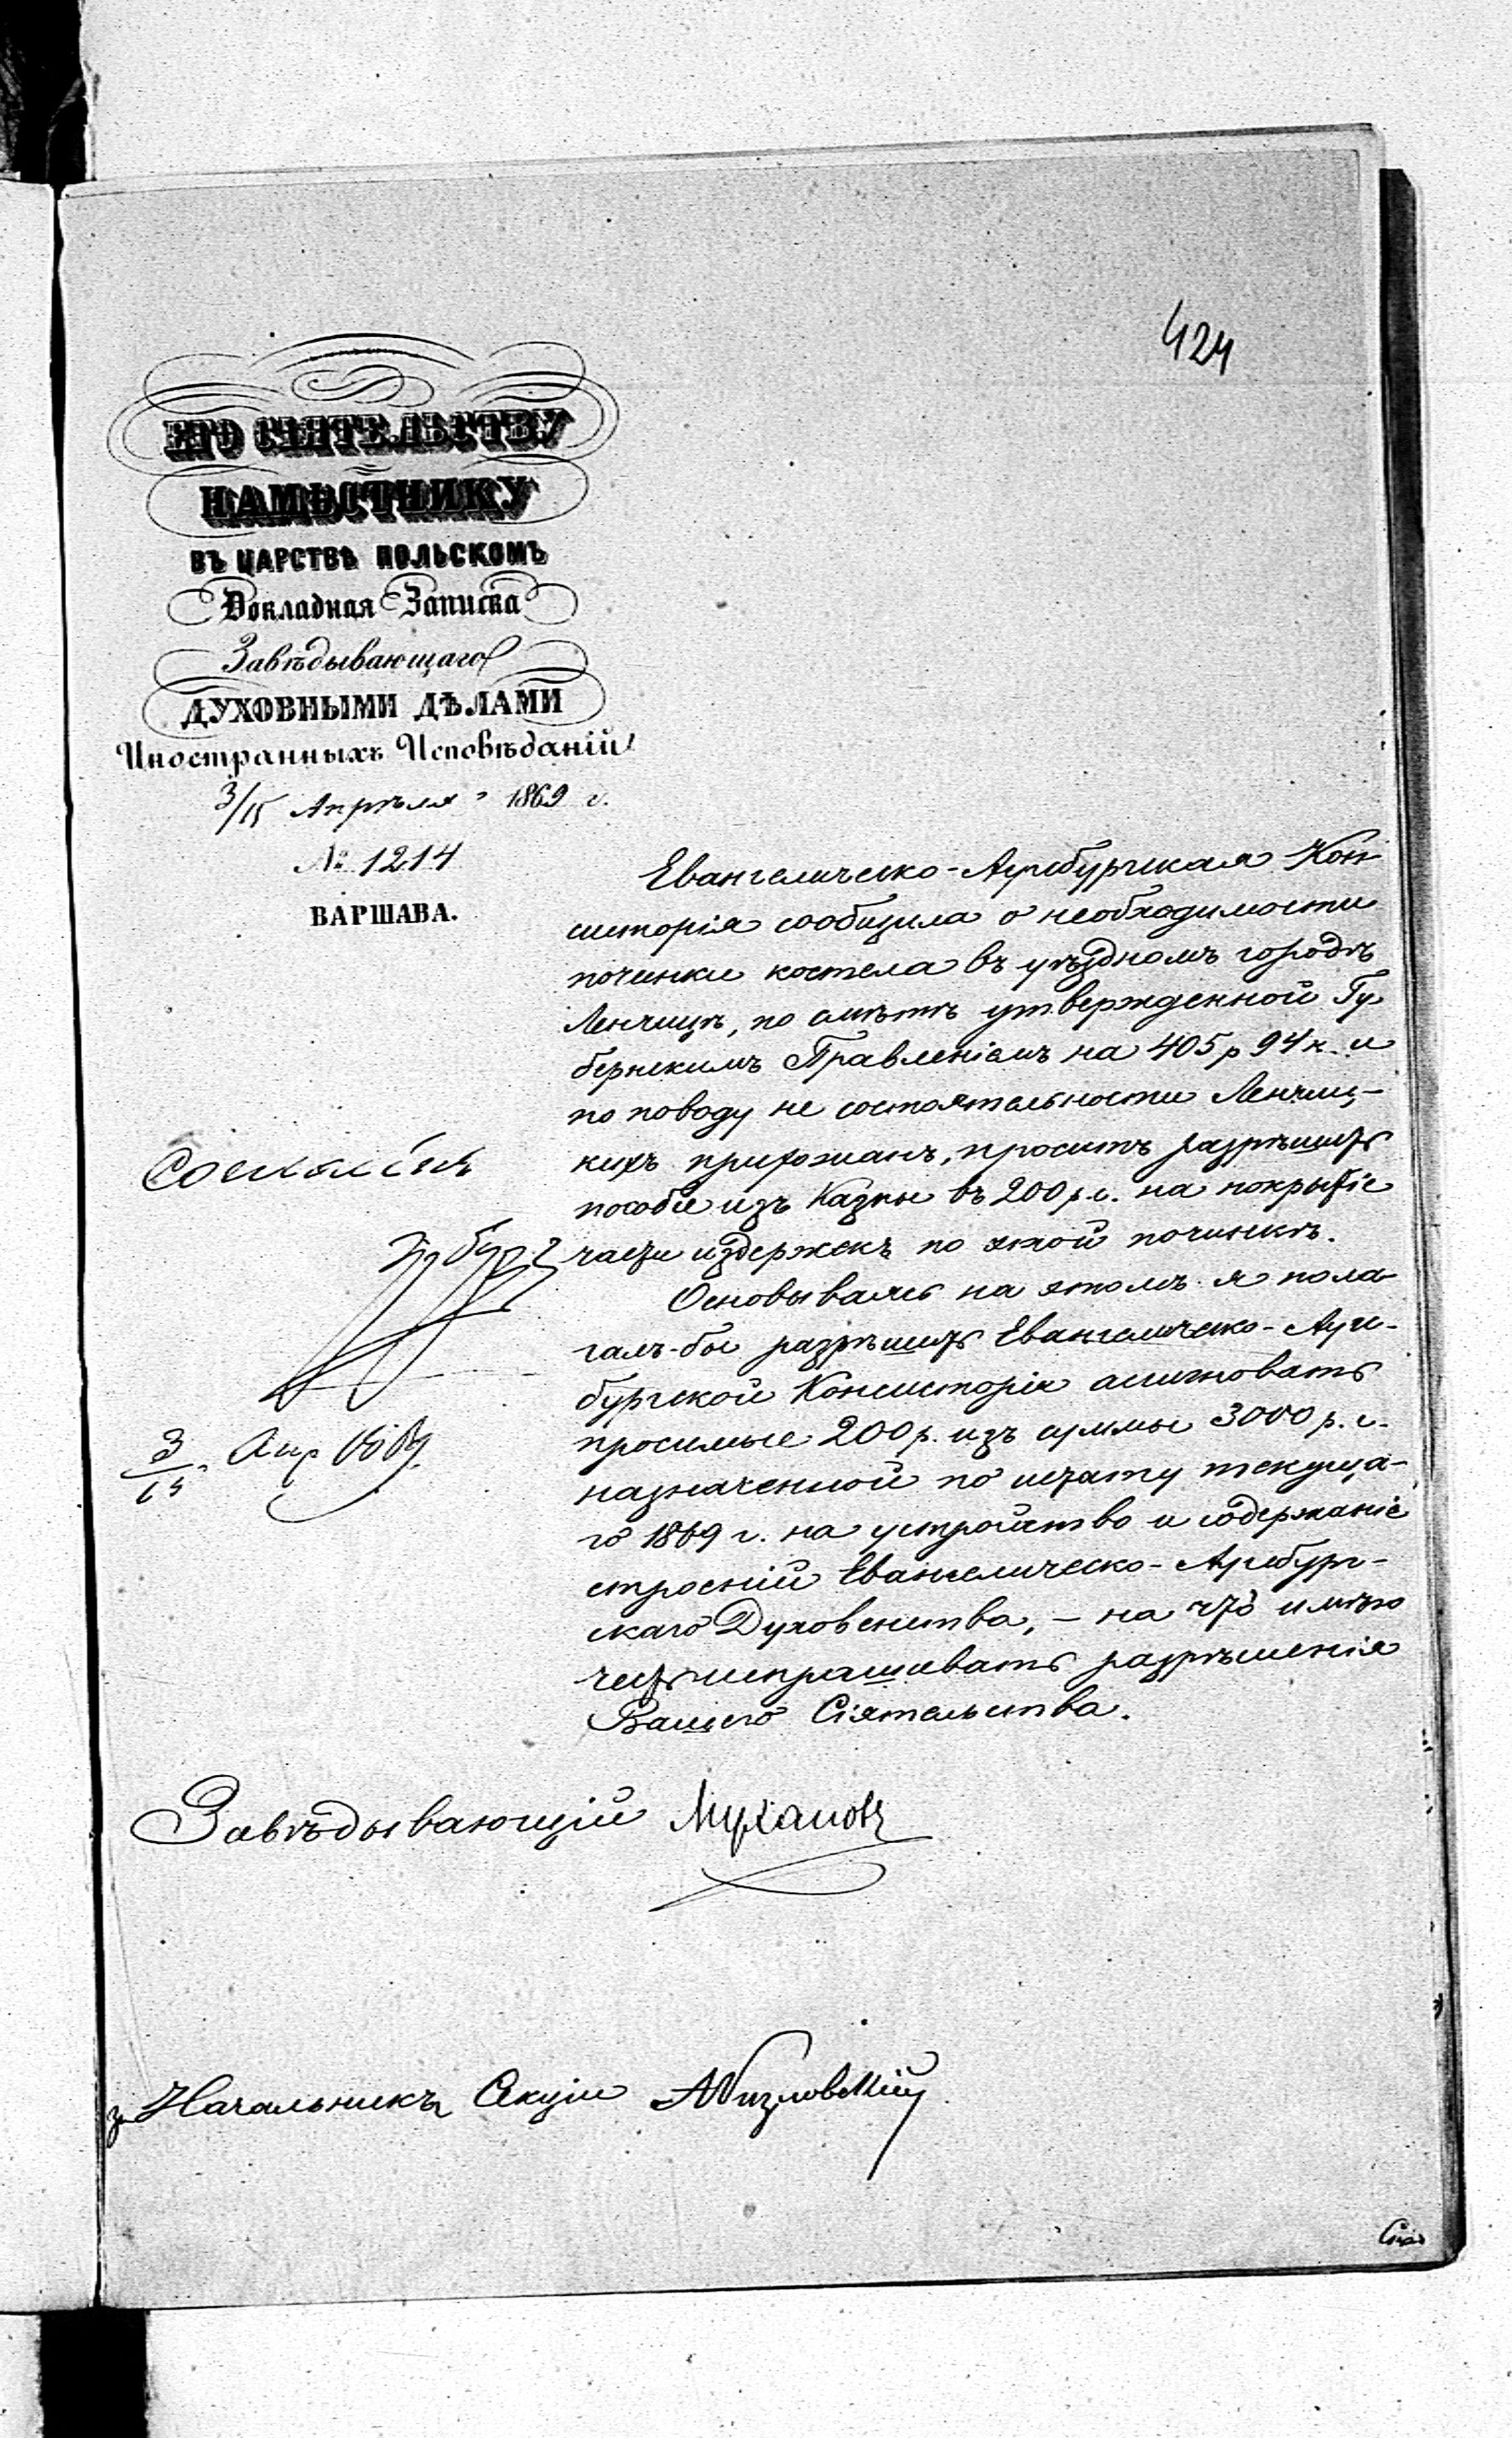 424
ЕГО СІЯТЕЛЬСТВУ
НАМѢСТНИКУ
ВЪ ЦАРСТВѢ ПОЛЬСКОМЪ
Докладная Записка
Завѣдывающаго
ДУХОВНЫМИ ДѢЛАМИ
Иностранныхъ Исповѣданій
3/15 Апрѣля 1869 г.
№ 1214
ВАРШАВА.
Евангелическо-Аугсбургская Кон
систорія сообщила о необходимости
починки костела въ уѣздномъ городѣ
Ленчицѣ, по смѣтѣ утвержденной Гу
бернскимъ Правленіемъ на 405 р 94 к. и
по поводу не состоятельности Ленчиц-
кихъ прихожанъ, проситъ разрѣшить
пособіе изъ Казны въ 200 р.с. на покрытіе
части издержекъ по этой починкѣ.
Основываясь на этомъ я пола
галъ-бы разрѣшить Евангелическо-Аугс-
бургской Консисторіи асигновать
просимые 200 р. изъ суммы 3000 р. с.
назначенной по штату текуща-
го 1869 г. на устройство и содержаніе
строеній Евангелическо-Аугсбург-
скаго Духовенства, - на что имѣю
честь испрашивать разрѣшенія
Вашего Сіятельства.
Согласенъ
3/15 Апр 1869
Завѣдывающій Мухановъ
за Начальникъ Секціи